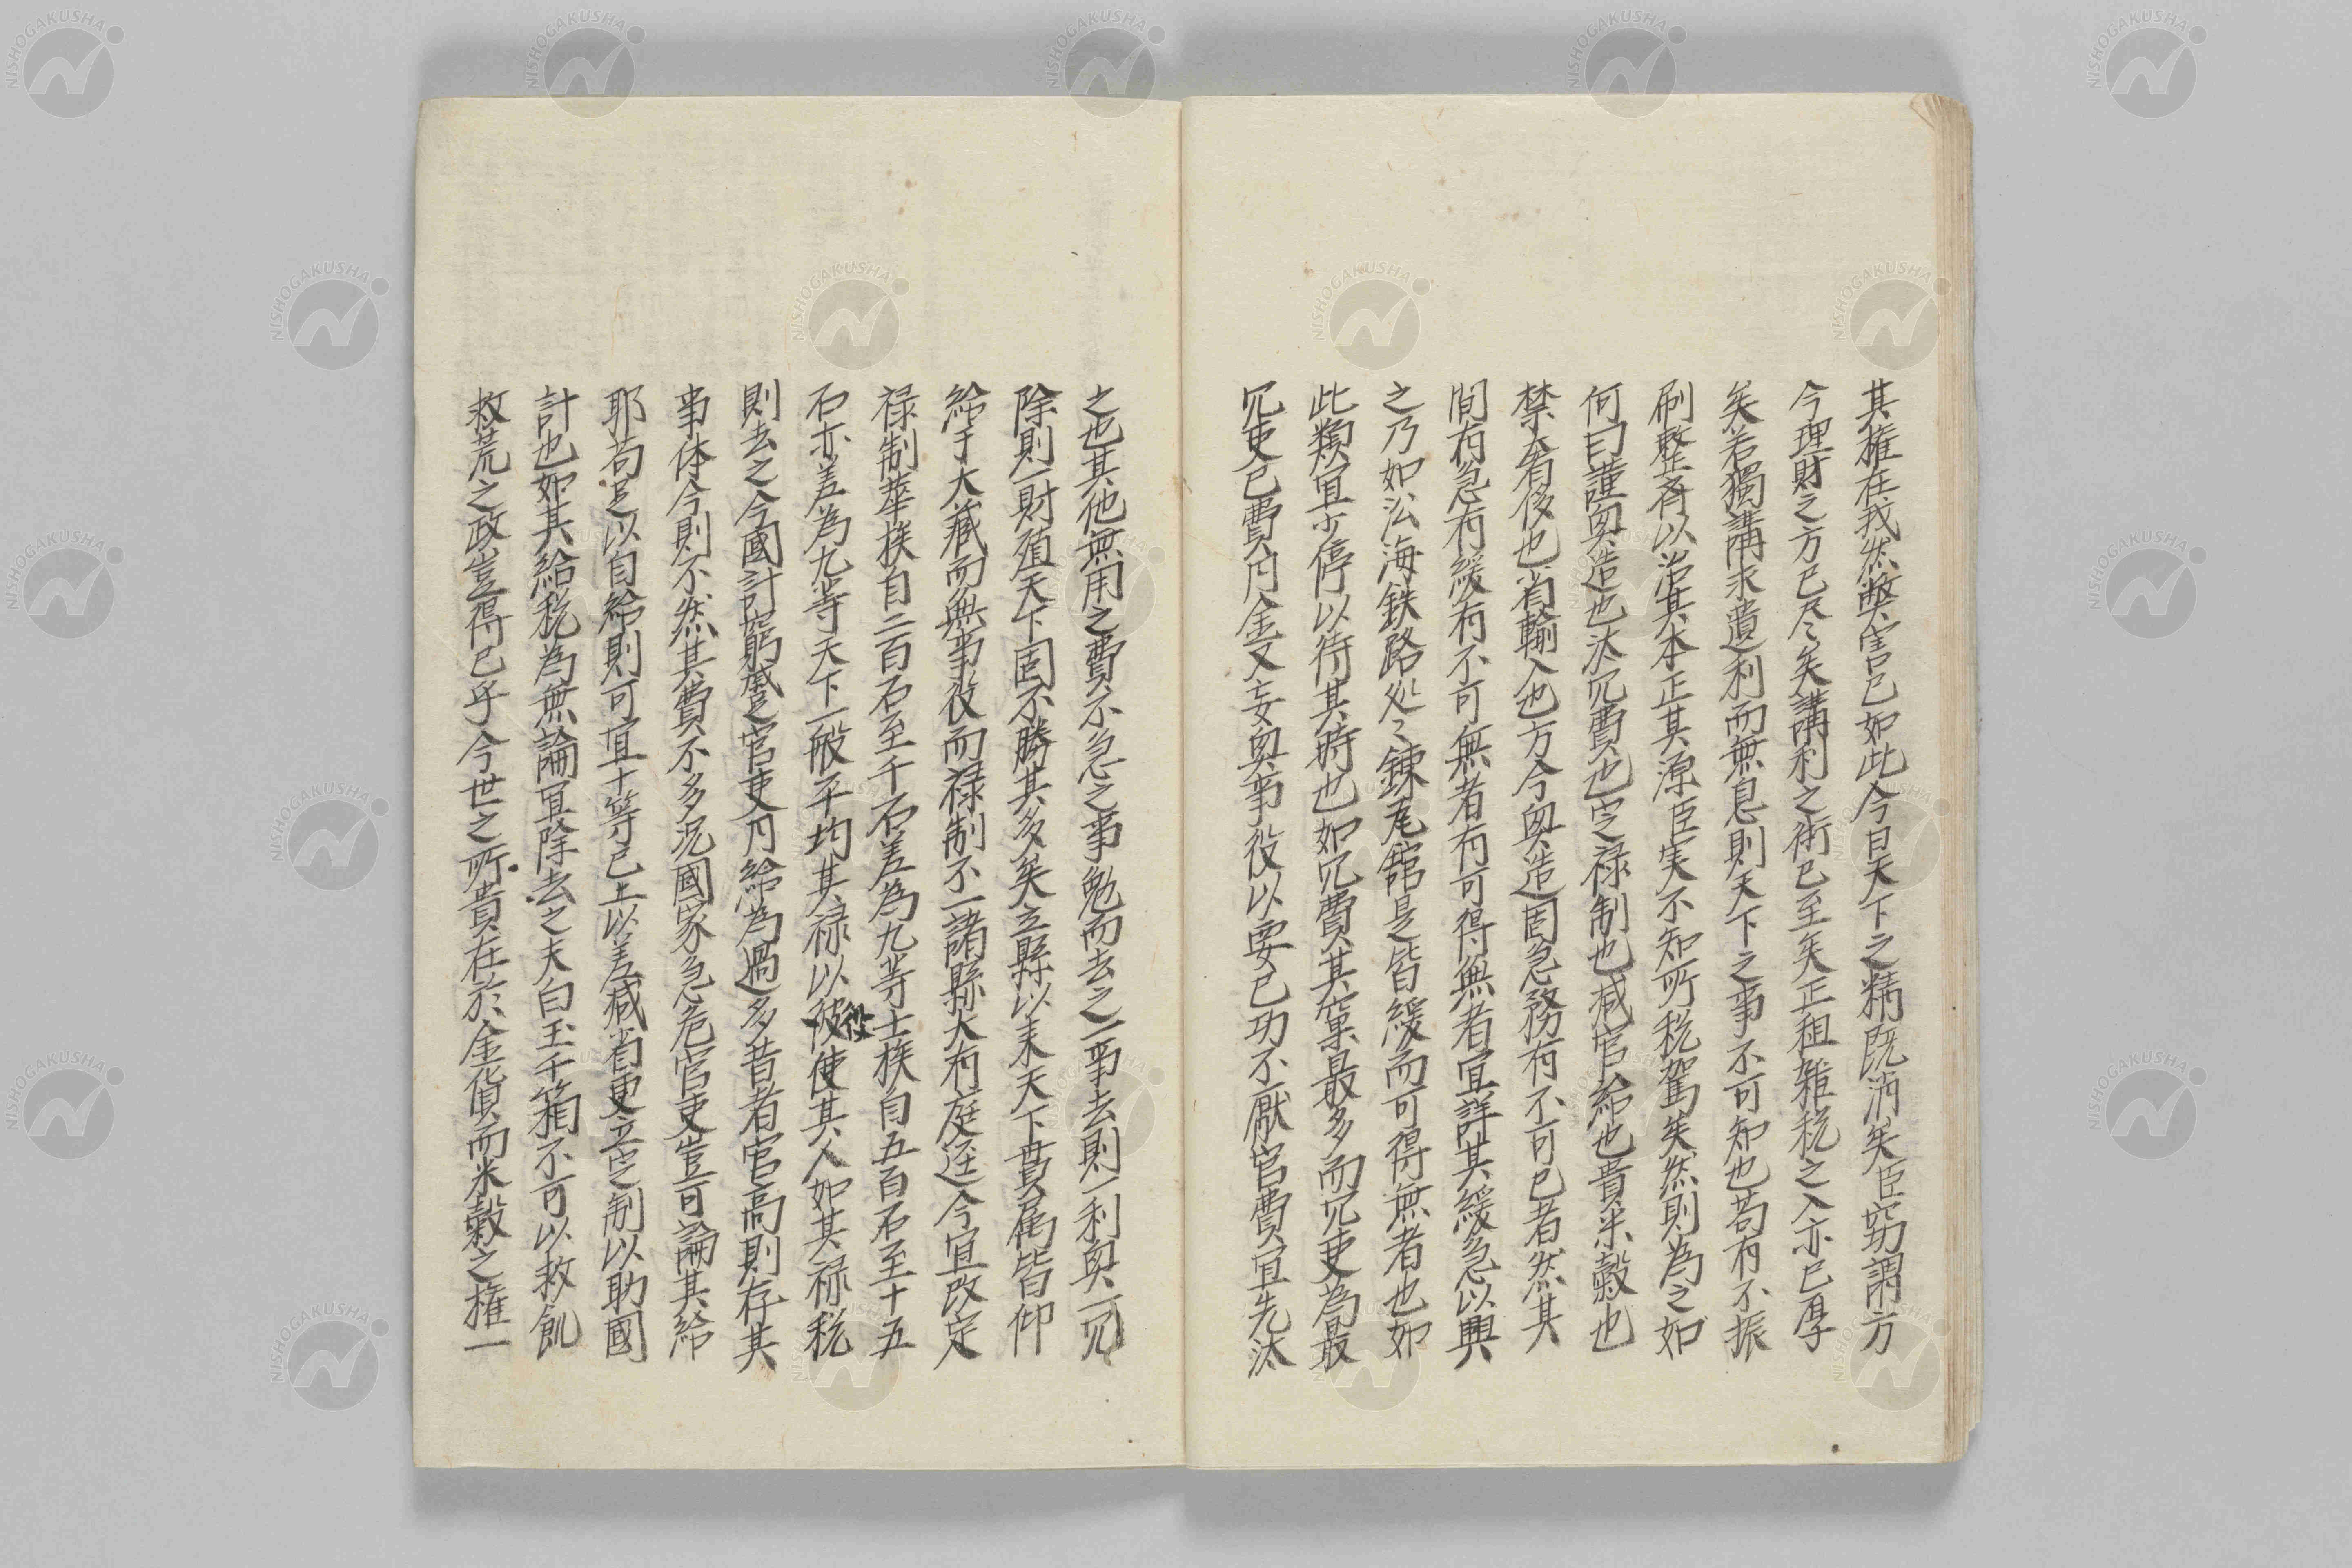 其権在我然弊害已如此今日天下之精既消矣臣窃謂方
今理財之方已尽々矣講利之術已至矣正租雑税之入亦已厚
矣若獨講求遺利而無息則天下之事不可知也苟有不振
刷整斉以治其本正其源臣実不知所税駕矣然則為之如
何曰謹興造也汰冗費也定禄制也減官給也貴米穀也
禁奢侈也省輸入也方今興造固急務有不可已者然其
間有急有緩有不可無者有可得無者宜詳其緩急以興
之乃如沿海鉄路処々錬瓦館是皆緩而可得無者也如
此類宜少停以待其時也如冗費其窠最多而冗吏為最
冗吏已費月金又妄興事役以要已功不厭官費宜先汰
之也其他無用之費不急之事勉而去之一事去則一利興一冗
除則一財殖天下固不勝其多矣立縣以来天下貢属皆仰
給于大蔵而無事役而禄制不一諸縣大有庭逕今宜改定
禄制華族自二百石至千石差為九等士族自五百石至十五
石亦差為九等天下一般平均其禄以役使其人如其禄税
則去之今國計窮蹙官吏月給為過多昔者官高則存其
事体今則不然其費不多况國家急危官吏豈可論其給
耶苟足以自給則可宜十等已上以差減省更立定制以助國
計也如其給税為無論宜除去之夫白玉千箱不可以救飢
救荒之政豈得已乎今世之所貴在於金貨而米穀之権一